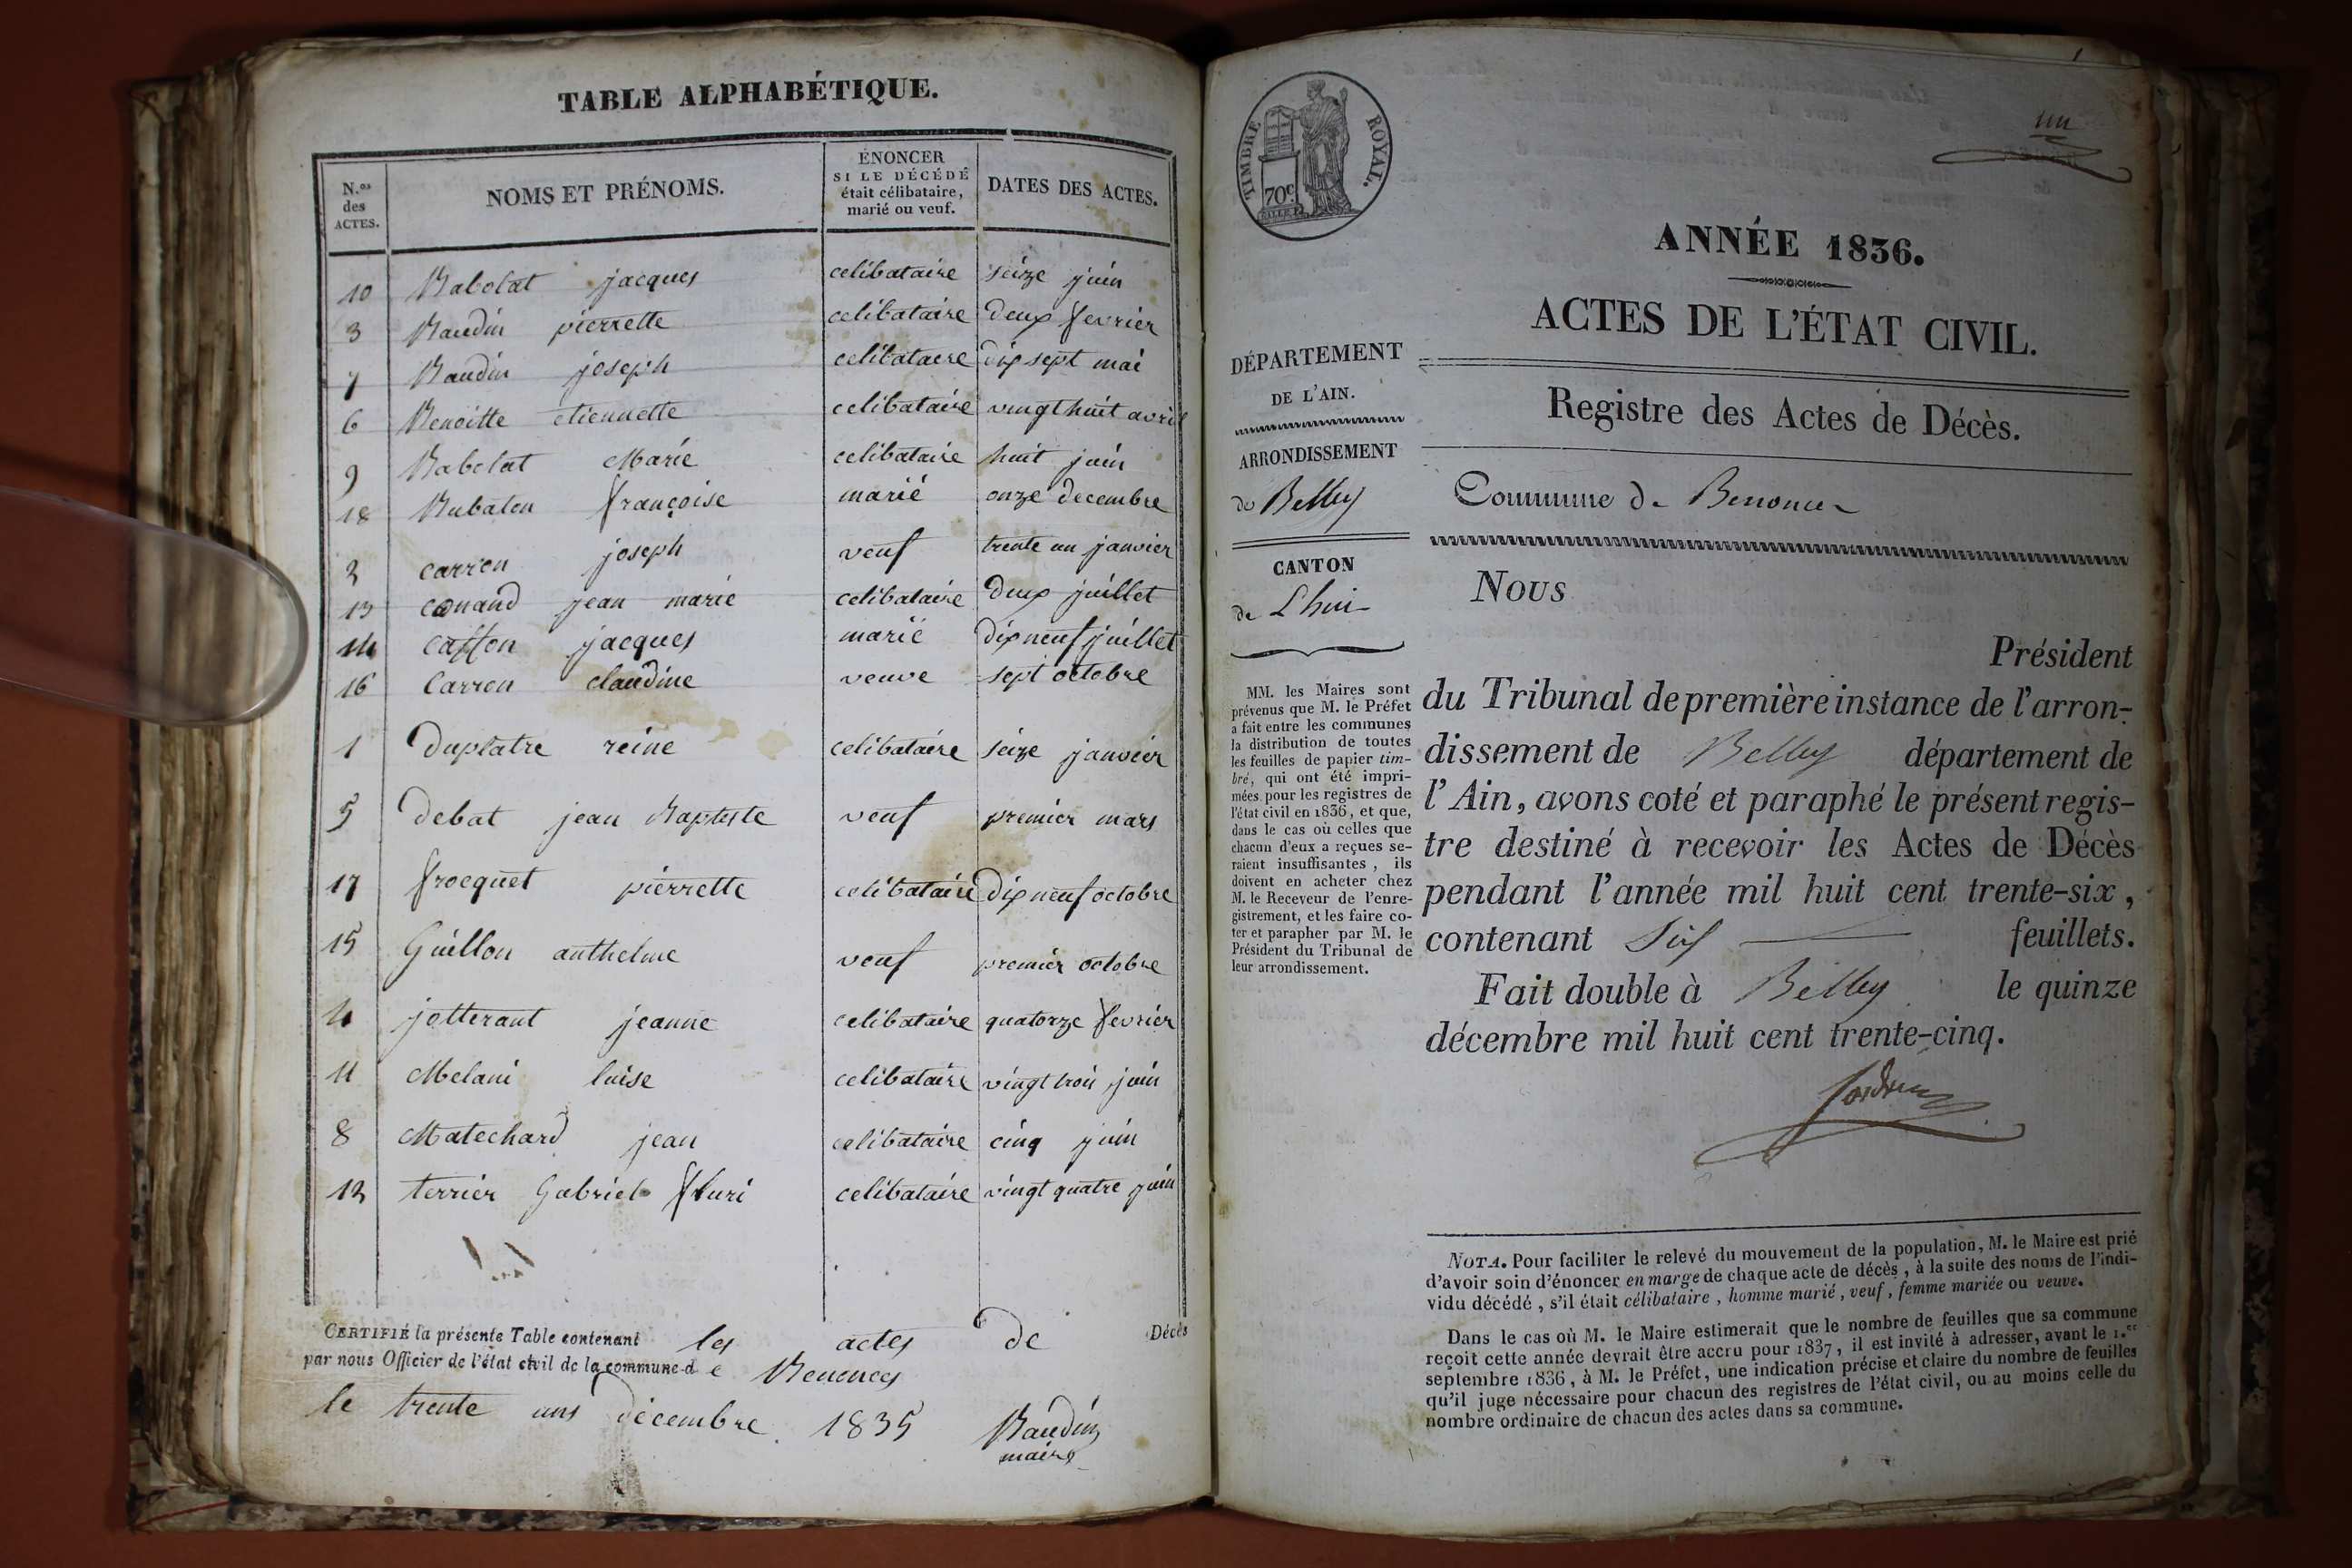 TABLE ALPHABÉTIQUE.
N.os des ACTES. NOMS ET PRÉNOMS. ÉNONCER SI LE DÉCÉDÉ était célibataire, marié ou veuf. DATES DES ACTES.
10 Babolat jacques celibataire seize juin
3 Baudin pierrette celibataire deux fevrier
7 Baudin joseph celibataire dix sept mai
6 Benoitte etiennette celibataire vingt huit avril
9 Babolat Marie celibataire huit juin
18 Bubaton françoise marié onze decembre
2 carron joseph veuf trente un janvier
13 conand jean marie celibataire deux juillet
14 jacques marié dix neuf juillet
16 Carron claudine veuve sept octobre
1 Duplatre reine celibataire seize janvier
5 Debat jean Baptiste veuf premier mars
17 frocquet pierrette celibataire dix neuf octobre
15 Guillon anthelme veuf premier octobre
4 jotterant jeanne celibataire quatorze fevrier
11 Melani luise celibataire vingt trois juin
8 Matechard jean celibataire cinq juin
12 terrier Gabriel fluri celibataire vingt quatre juin
CERTIFIÉ la présente Table contenant les actes de Décès
par nous Officier de l'état civil de la commune de Benonces
le trente uns décembre 1835 Baudin
maire
1
un
TIMBRE ROYAL.
70c.
ANNÉE 1836.
ACTES DE L'ÉTAT CIVIL.
Registre des Actes de Décès.
DÉPARTEMENT
DE L'AIN.
ARRONDISSEMENT
de Belley
CANTON
de Lhuis
MM. les Maires sont
prévenus que M. le Préfet
a fait entre les communes
la distribution de toutes
les feuilles de papier tim-
bré, qui ont été impri-
mées pour les registres de
l'état civil en 1836, et que,
dans le cas où celles que
chacun d'eux a reçues se-
raient insuffisantes, ils
doivent en acheter chez
M. le Receveur de l'enre-
gistrement, et les faire co-
ter et parapher par M. le
Président du Tribunal de
leur arrondissement.
Commune de Benonce
Nous
Président
du Tribunal de première instance de l'arron-
dissement de Belley département de
l'Ain, avons coté et paraphé le présent regis-
tre destiné à recevoir les Actes de Décès
pendant l'année mil huit cent trente-six,
contenant Six feuillets.
Fait double à Belley le quinze
décembre mil huit cent trente-cinq.
NOTA. Pour faciliter le relevé du mouvement de la population, M. le Maire est prié
d'avoir soin d'énoncer en marge de chaque acte de décès, à la suite des noms de l'indi-
vidu décédé, s'il était célibataire, homme marié, veuf, femme mariée ou veuve.
Dans le cas où M. le Maire estimerait que le nombre de feuilles que sa commune
reçoit cette année devrait être accru pour 1837, il est invité à adresser, avant le 1.er
septembre 1836, à M. le Préfet, une indication précise et claire du nombre de feuilles
qu'il juge nécessaire pour chacun des registres de l'état civil, ou au moins celle du
nombre ordinaire de chacun des actes dans sa commune.